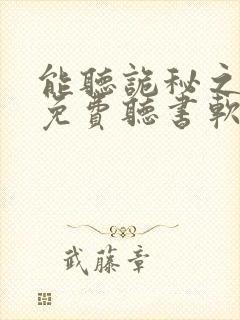 能聽詭秘之
免費聽書軟
武藤章